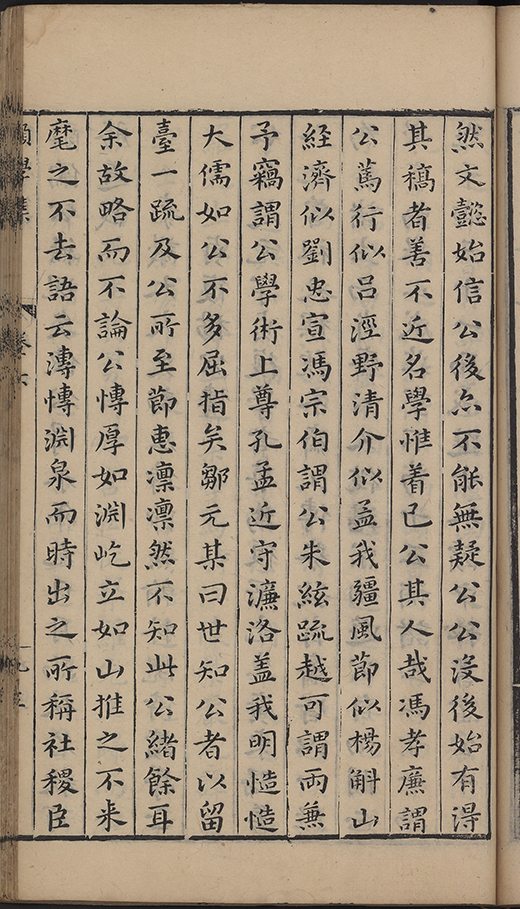 然文懿始信公後亦不能無疑公公沒後始有得
其稿者善不近名學惟着己公其人哉馮孝廉謂
公篤行似呂涇野清介似孟我疆風節似楊斛山
經濟似劉忠宣馮宗伯謂公朱絃疏越可謂兩兼
予竊謂公學術上尊孔孟近守濂洛盖我明慥慥
大儒如公不多屈指矣鄒元某曰世知公者以留
臺一疏及公所至節惠凛凛然不知此公緒餘耳
余故略而不論公慱厚如淵屹立如山推之不来
麾之不去語云溥慱淵泉而時出之所稱社稷臣
願學集 卷六